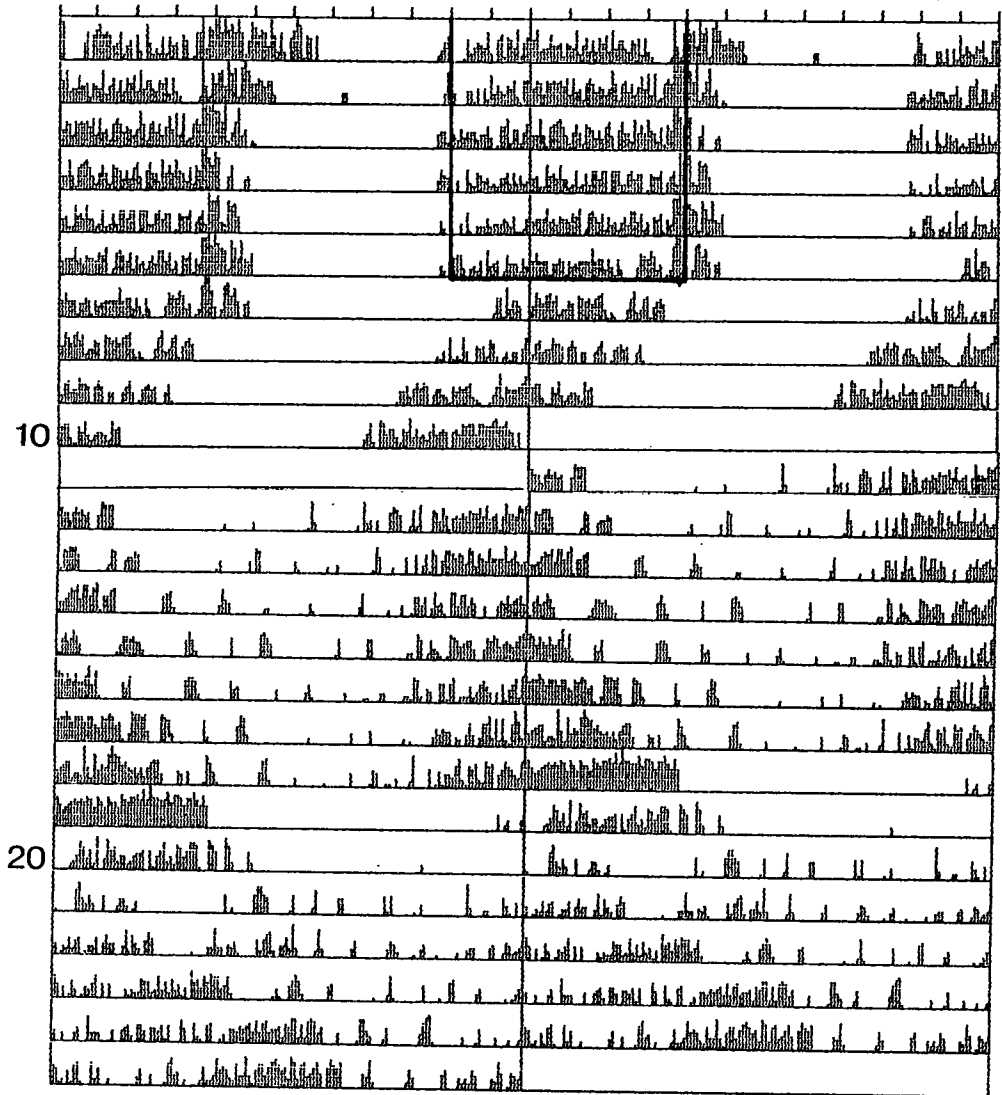 10
20